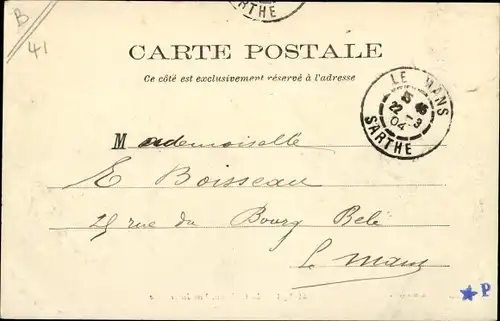 B
41
SARTHE
CARTE POSTALE
Ce côté est exclusivement réservé à l'adresse
LE MANS
15 45
22 - 3
04
SARTHE
Mademoiselle
E Boisseau
25 rue du Bourg Belé
Le Mans
P